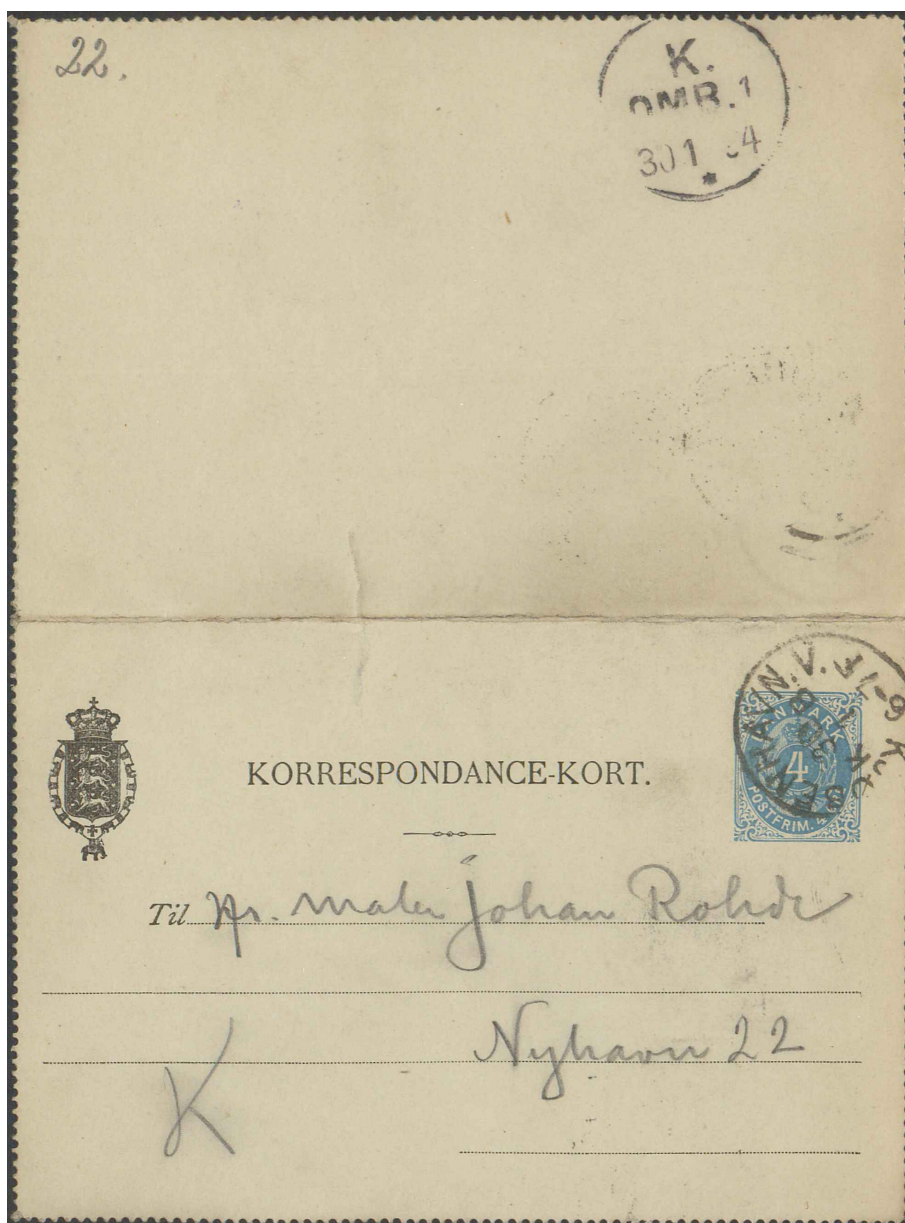 22.
K.
OMB.1
30 1
KJØBENHAVN.V.
30
DANMARK
4
POSTFRIM.
KORRESPONDANCE-KORT.
Til Hr. Maler Johan Rohde
Nyhavn 22
K